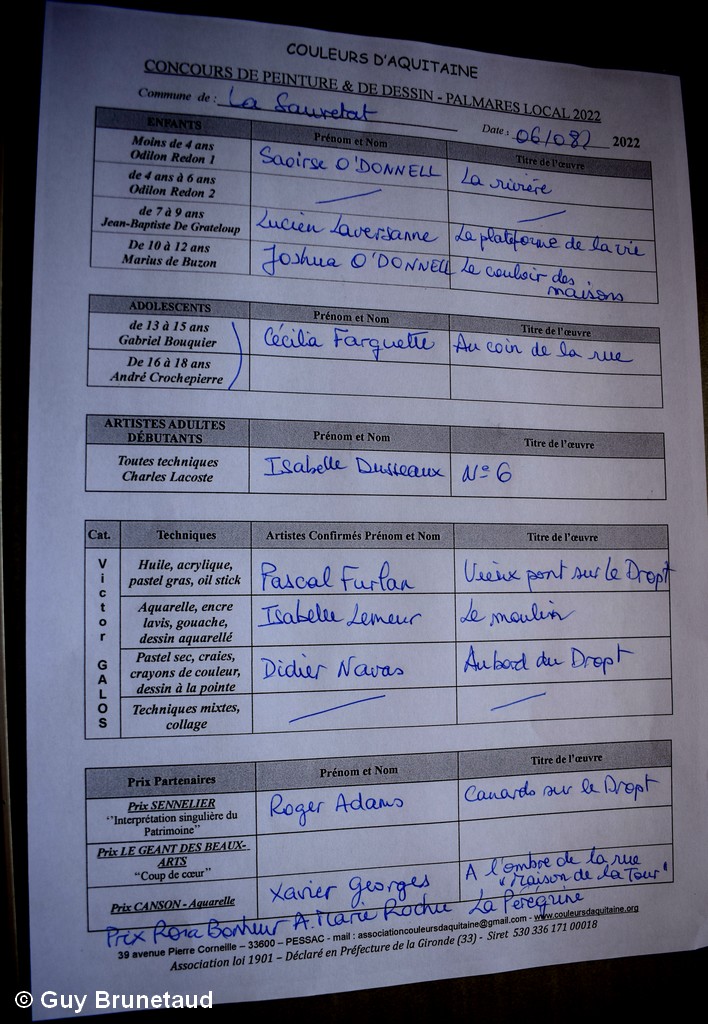 COULEURS D'AQUITAINE
CONCOURS DE PEINTURE & DE DESSIN - PALMARES LOCAL 2022
Commune de : La Sauvetat Date : 06/082 2022
ENFANTS Prénom et Nom Titre de l'œuvre
Moins de 4 ans
Odilon Redon 1
Saoirse O'DONNELL La rivière
de 4 ans à 6 ans
Odilon Redon 2
de 7 à 9 ans
Jean-Baptiste De Grateloup
Lucien Laversanne La plateforme de la vie
De 10 à 12 ans
Marius de Buzon
Joshua O'DONNELL Le couloir des
maisons
ADOLESCENTS Prénom et Nom Titre de l'œuvre
de 13 à 15 ans
Gabriel Bouquier
Cécilia Farguette Au coin de la rue
De 16 à 18 ans
André Crochepierre
ARTISTES ADULTES
DÉBUTANTS
Prénom et Nom Titre de l'œuvre
Toutes techniques
Charles Lacoste
Isabelle Dusseaux N° 6
Cat. Techniques Artistes Confirmés Prénom et Nom Titre de l'œuvre
Victor GALOS
Huile, acrylique,
pastel gras, oil stick
Pascal Furlan Vieux pont sur le Dropt
Aquarelle, encre
lavis, gouache,
dessin aquarellé
Isabelle Lemeur Le moulin
Pastel sec, craies,
crayons de couleur,
dessin à la pointe
Didier Navas Au bord du Dropt
Techniques mixtes,
collage
Prix Partenaires Prénom et Nom Titre de l'œuvre
Prix SENNELIER
"Interprétation singulière du
Patrimoine"
Roger Adams Canards sur le Dropt
Prix LE GEANT DES BEAUX-
ARTS
"Coup de cœur"
Prix CANSON - Aquarelle
Xavier Georges A l'ombre de la rue
"Maison de la Tour"
Prix Rosa Bonheur A. Marie Rochu La Pérégrine
39 avenue Pierre Corneille – 33600 – PESSAC - mail : associationcouleursdaquitaine@gmail.com - www.couleursdaquitaine.org
Association loi 1901 – Déclaré en Préfecture de la Gironde (33) - Siret 530 336 171 00018
© Guy Brunetaud